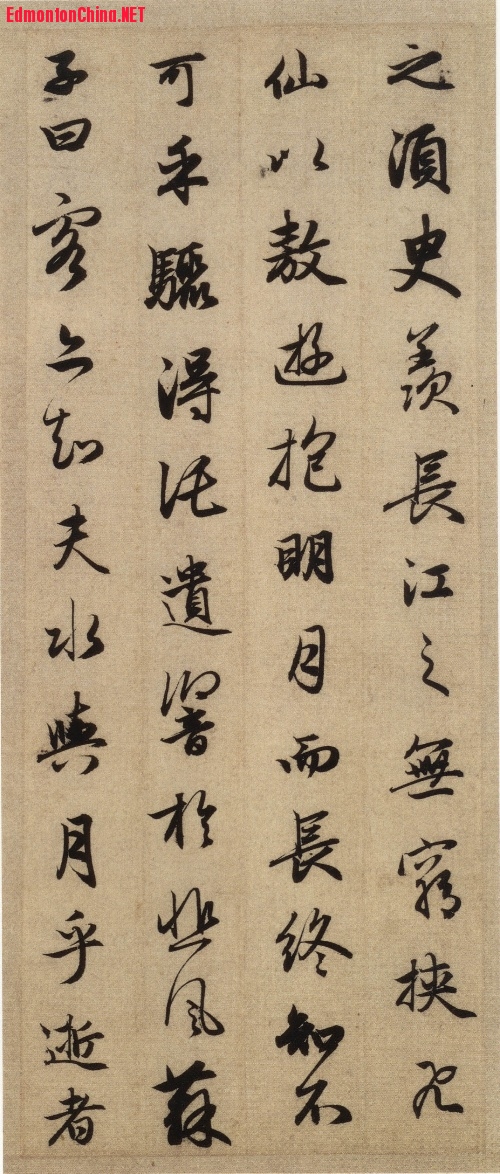 EdmontonChina.NET
之須臾羨長江之無窮挾飛
仙以敖遊抱明月而長終知不
可乎驟得託遺響於悲風蘇
子曰客亦知夫水與月乎逝者